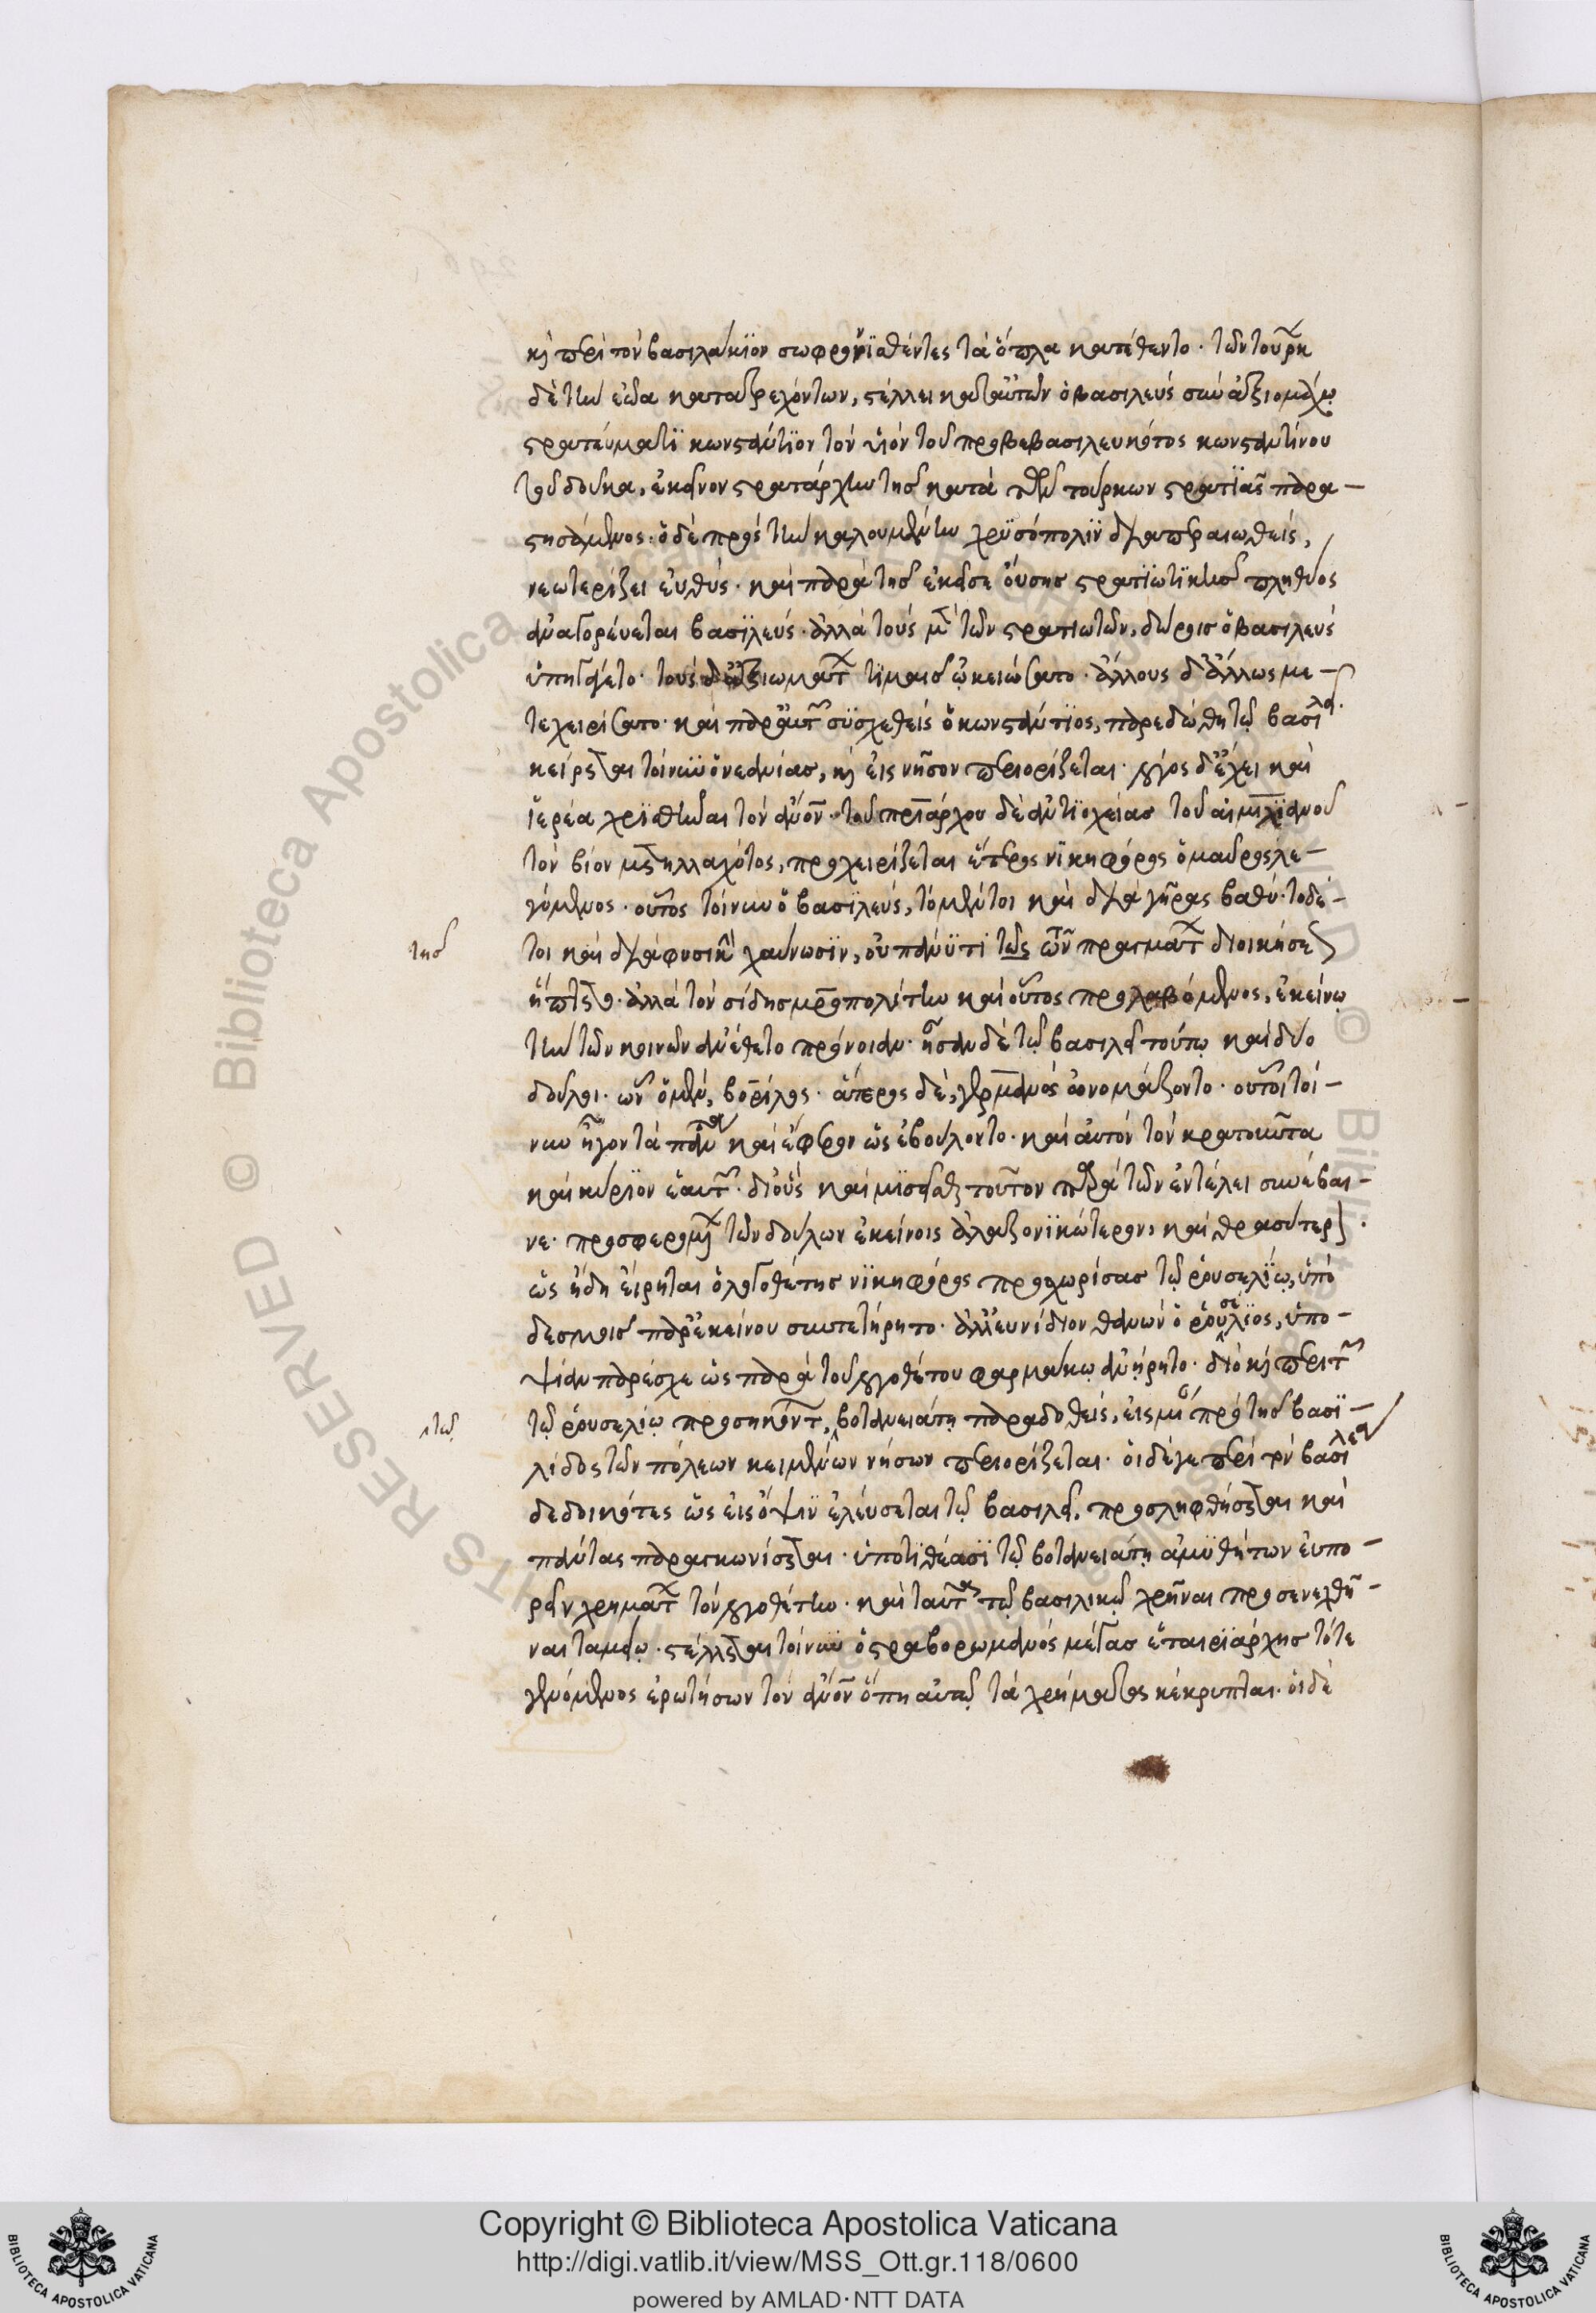 κὶ περὶ τὸν βασιλάκϊον σωφρονϊσθέντες τὰ ὅπλα κατέθεντο· τῶν τούρκ
δὲ τὴν ἑώα κατατρεχόντων, στέλλει κατ αὐτῶν ὁ βασιλεὺς σὺν ἀξιομάχω
στρατεύματϊ κωνστάντϊον τὸν υἱὸν τοῦ προβεβασιλευκότος κωνσταντίνου
τοῦ δούκα, ἐκεῖνον στρατάρχην τῆς κατὰ τῶν τούρκων στρατϊᾶς παρα-
στησάμενος· ὁ δὲ πρὸς τὴν καλουμένην χρϋσόπολϊν διαπεραιωθεὶς,
νεωτερίζει εὐθὺς· καὶ παρὰ τῆς ἐκεῖσε οὔσης στρατϊωτϊκῆς πληθύος
ἀναγορεύεται βασϊλεὺς· ἀλλὰ τοὺς μὲν τῶν στρατιωτῶν, δώροις ὁ βασιλεὺς
ὑπηγάγετο· τοὺς δ ἀξιωμάτ τϊμαῖς ὠκειώσατο· ἄλλους δ ἄλλως με-
τεχειρίσατο· καὶ παρ αὐτ σϋσχεθεὶς ὁ κωνστάντϊος, παρεδόθη τῶ βασιλεῖ·
κείρεται τοίνυν ὁ νεανίας, κὶ εἰς νῆσον περιορίζεται· λόγος δ ἔχει καὶ
ἱερέα χρϊσθῆναι τὸν ἄνον· τοῦ πριάρχου δὲ ἀντϊοχείας τοῦ αἰμιλϊανοῦ
τὸν βίον μετηλλαχότος, προχειρίζεται ἕτερος νϊκηφόρος ὁ μαῦρος λε-
γόμενος· οὗτος τοίνυν ὁ βασϊλεὺς, τὸ μέντοι καὶ διὰ γῆρας βαθὺ· τὸ δέ-
τῆς
τοι καὶ διὰ φυσικὴν χαύνωσϊν, οὐ πάνϋ τϊ τῶς τῶν πραγμάτ διοικήσεως
ἥπτετο· ἀλλὰ τὸν σίδης μροπολίτην καὶ οὗτος προσλαβόμενος, ἐκείνω
τὴν τῶν κοινῶν ἀνέθετο πρόνοιαν· ἦσαν δὲ τῶ βασιλεῖ τούτω καὶ δύο
δοῦλοι· ὧν ὁ μὲν, βορίλος· ἅτερος δὲ, γερμανὸς ὠνομάζοντο· οὗτοι τοί-
νυν ἦγον τὰ πάντα καὶ ἔφερον ὡς ἐβούλοντο· καὶ αὐτὸν τὸν κρατοῦντα
καὶ κύρϊον ἑαυτ· διὸ οὓς καὶ μϊσεῖσθαι τοῦτον παρὰ τῶν ἐν τέλει συνέβαι-
νε· προσφερομέν τῶν δούλων ἐκείνοις ἀλαζονϊκώτερον, καὶ θρασύτερον·
ὡς ἤδη εἴρηται ὁ λογοθέτης νϊκηφόρος προσχωρίσας τῶ ῥουσελϊω, ὑπὸ
δεσμοῖς παρ ἐκείνου συνετήρητο· ἀλλ ευνίδιον θανὼν ὁ ῥουσέλϊος, ὑπο-
ψίαν παρέσχε ὡς παρὰ τοῦ λογοθέτου φαρμάκω ἀνήρητο· διὸ κὶ περὶ τ
λτῶ
τῶ ῥουσελίω προσηκόντ, βοτανειάτη παραδοθεὶς, εἰς μίαν πρὸ τῆς βασϊ-
λίδος τῶν πόλεων κειμένων νήσων περιορίζεται· οἱ δέ γε περὶ τὸν βασιλέα
δεδοικότες ὡς εἰς ὄψιν ἐλεύσεται τῶ βασιλεῖ, προσληφθήσεται καὶ
πάντας παραγκωνίσεται· ὑποτϊθέασϊ τῶ βοτανειάτη ἀμϋθήτων εὐπο-
ρεῖν χρημάτ τὸν λογοθέτην· καὶ ταῦτα τῶ βασιλικῶ χρῆναι προσενεχθῆ-
ναι ταμείω· στέλλεται τοίνυν ὁ στραβορωμανὸς μέγας ἑταιρϊάρχης τότε
γενόμενος ἐρωτήσων τὸν ἄνον ὅπη αὐτῶ τὰ χρήματος κέκρυπται· οἱ δὲ
Copyright © Biblioteca Apostolica Vaticana
http://digi.vatlib.it/view/MSS_Ott.gr.118/0600
powered by AMLAD·NTT DATA